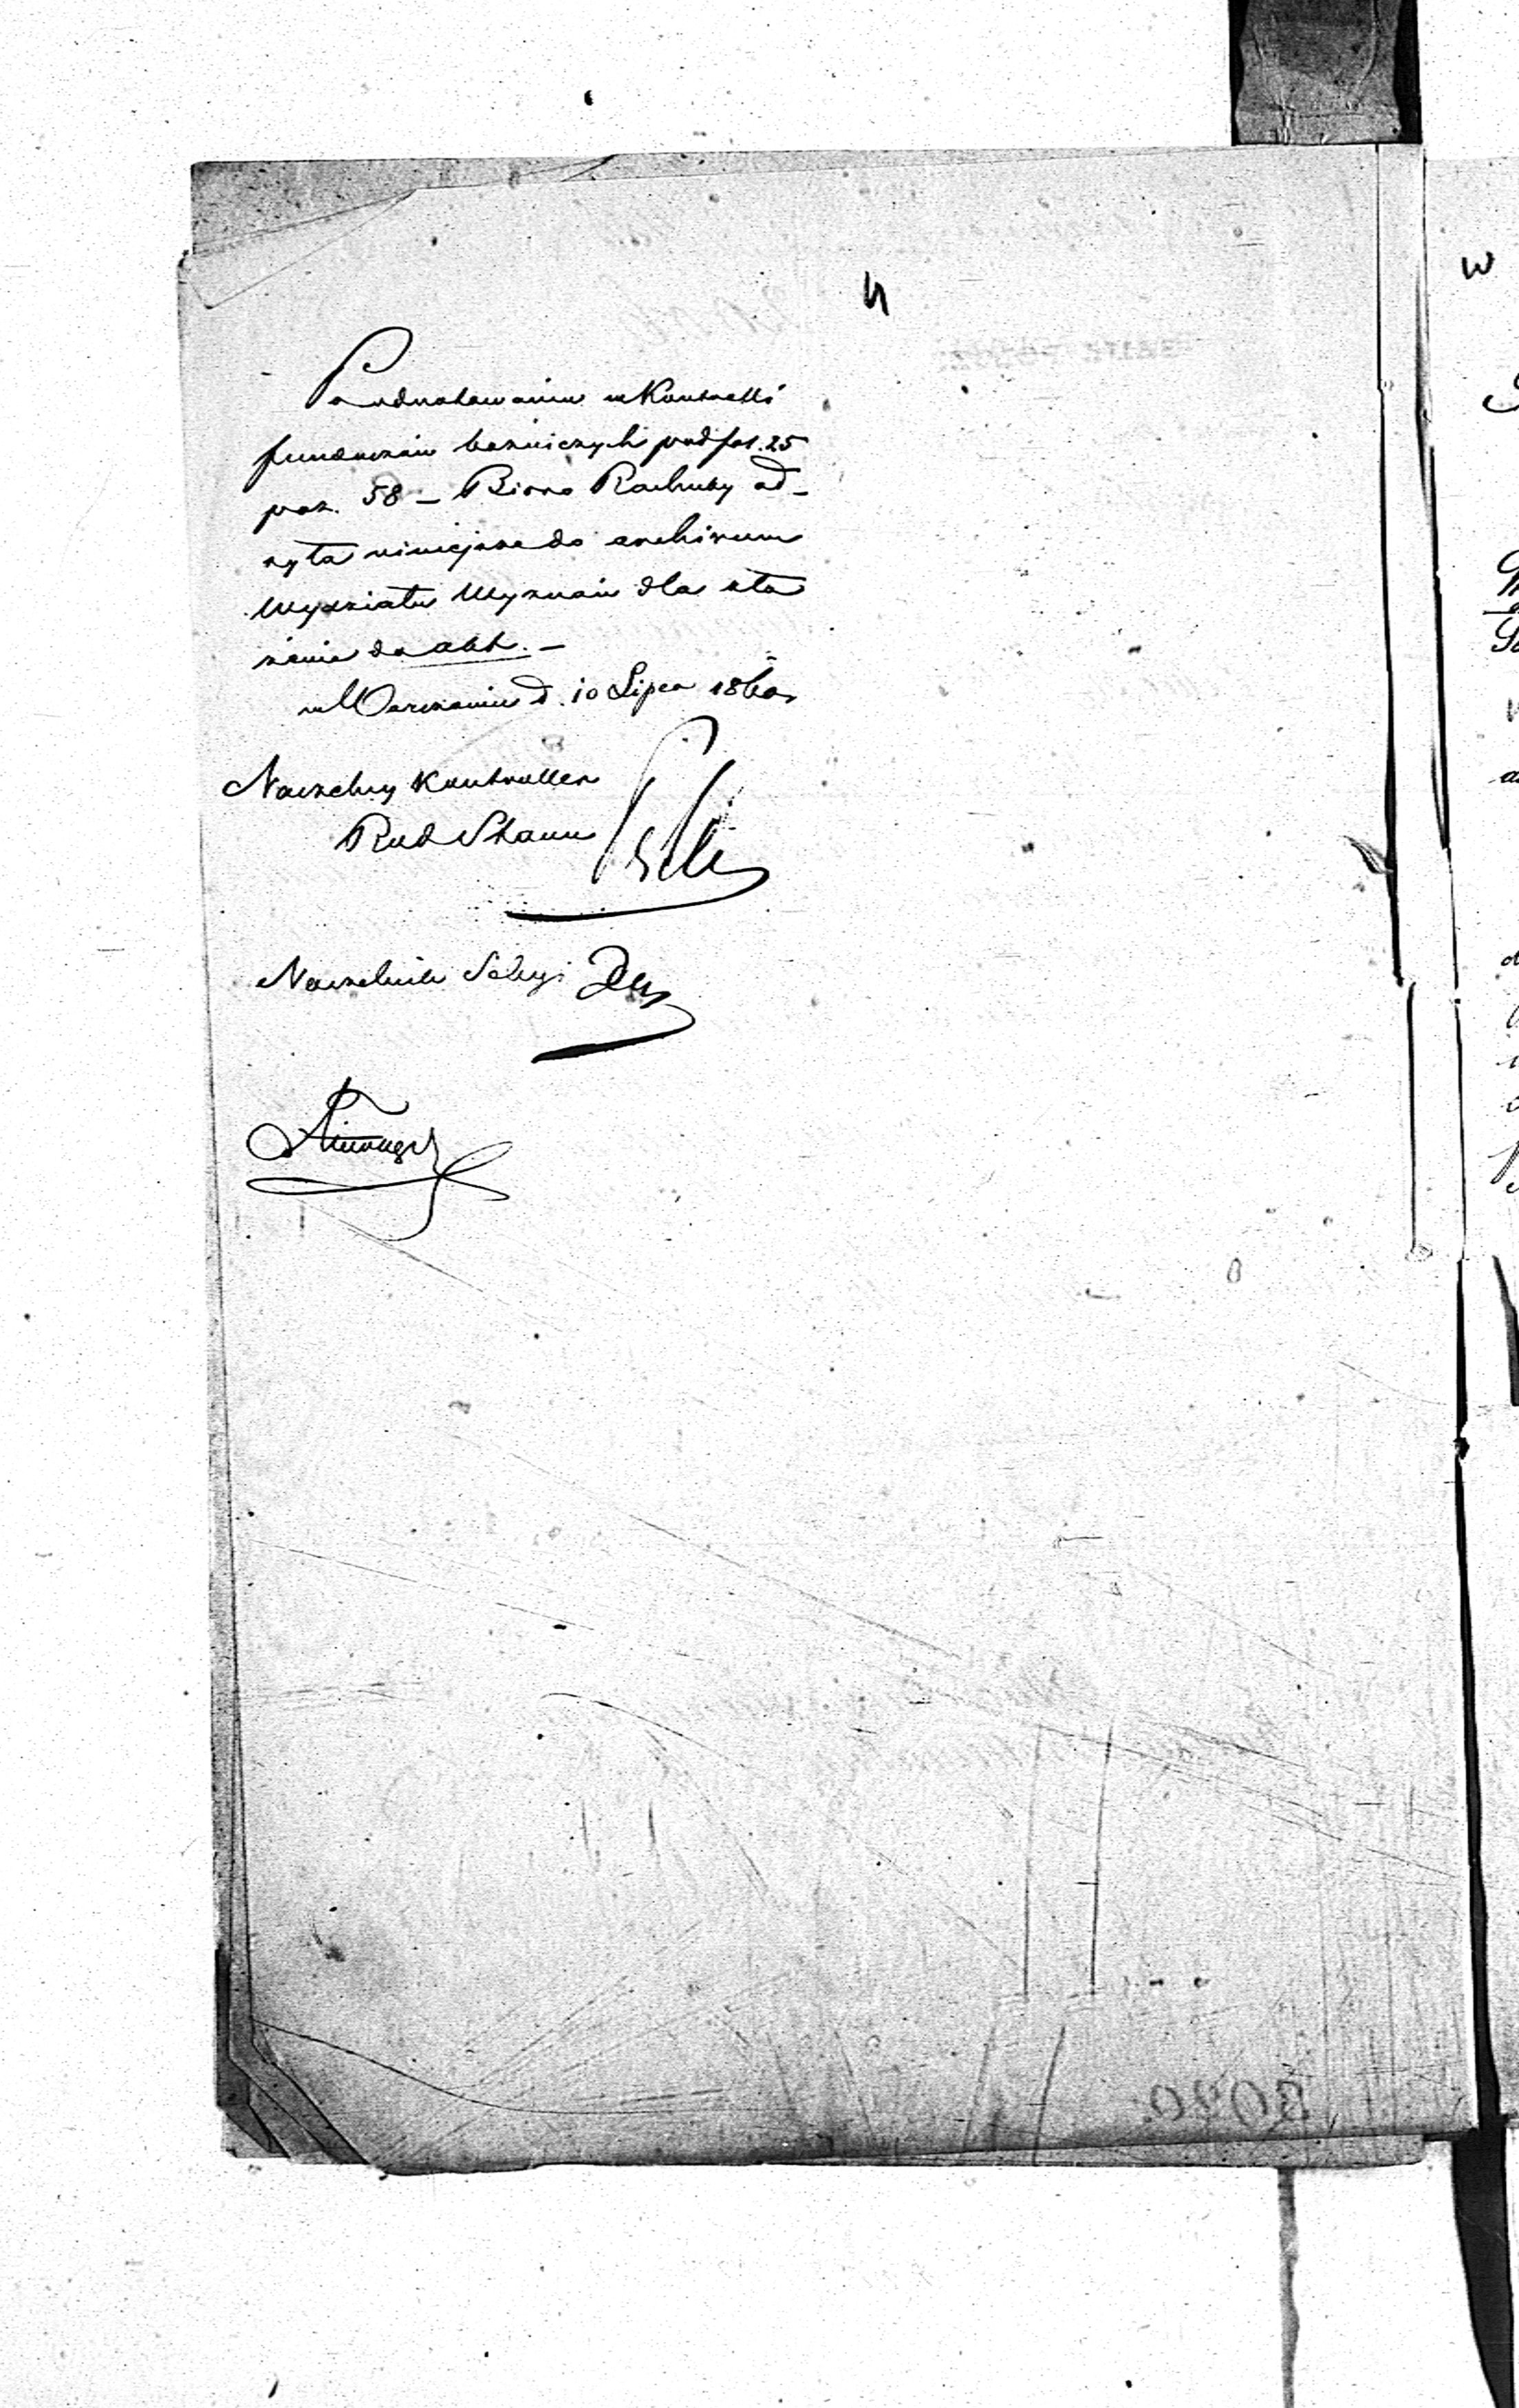 Po odnotowaniu w Kontrolli
funduszów bożniczych pod fol. 25
poz. 58 – Biuro Rachuby od-
syła niniejsze do archivum
Wydziału Wyznań dla zło
żenia do akt. –
w Warszawie d. 10 Lipca 1860
Naczelny Kontroller
Rad Stanu
Naczelnik Sekcyi